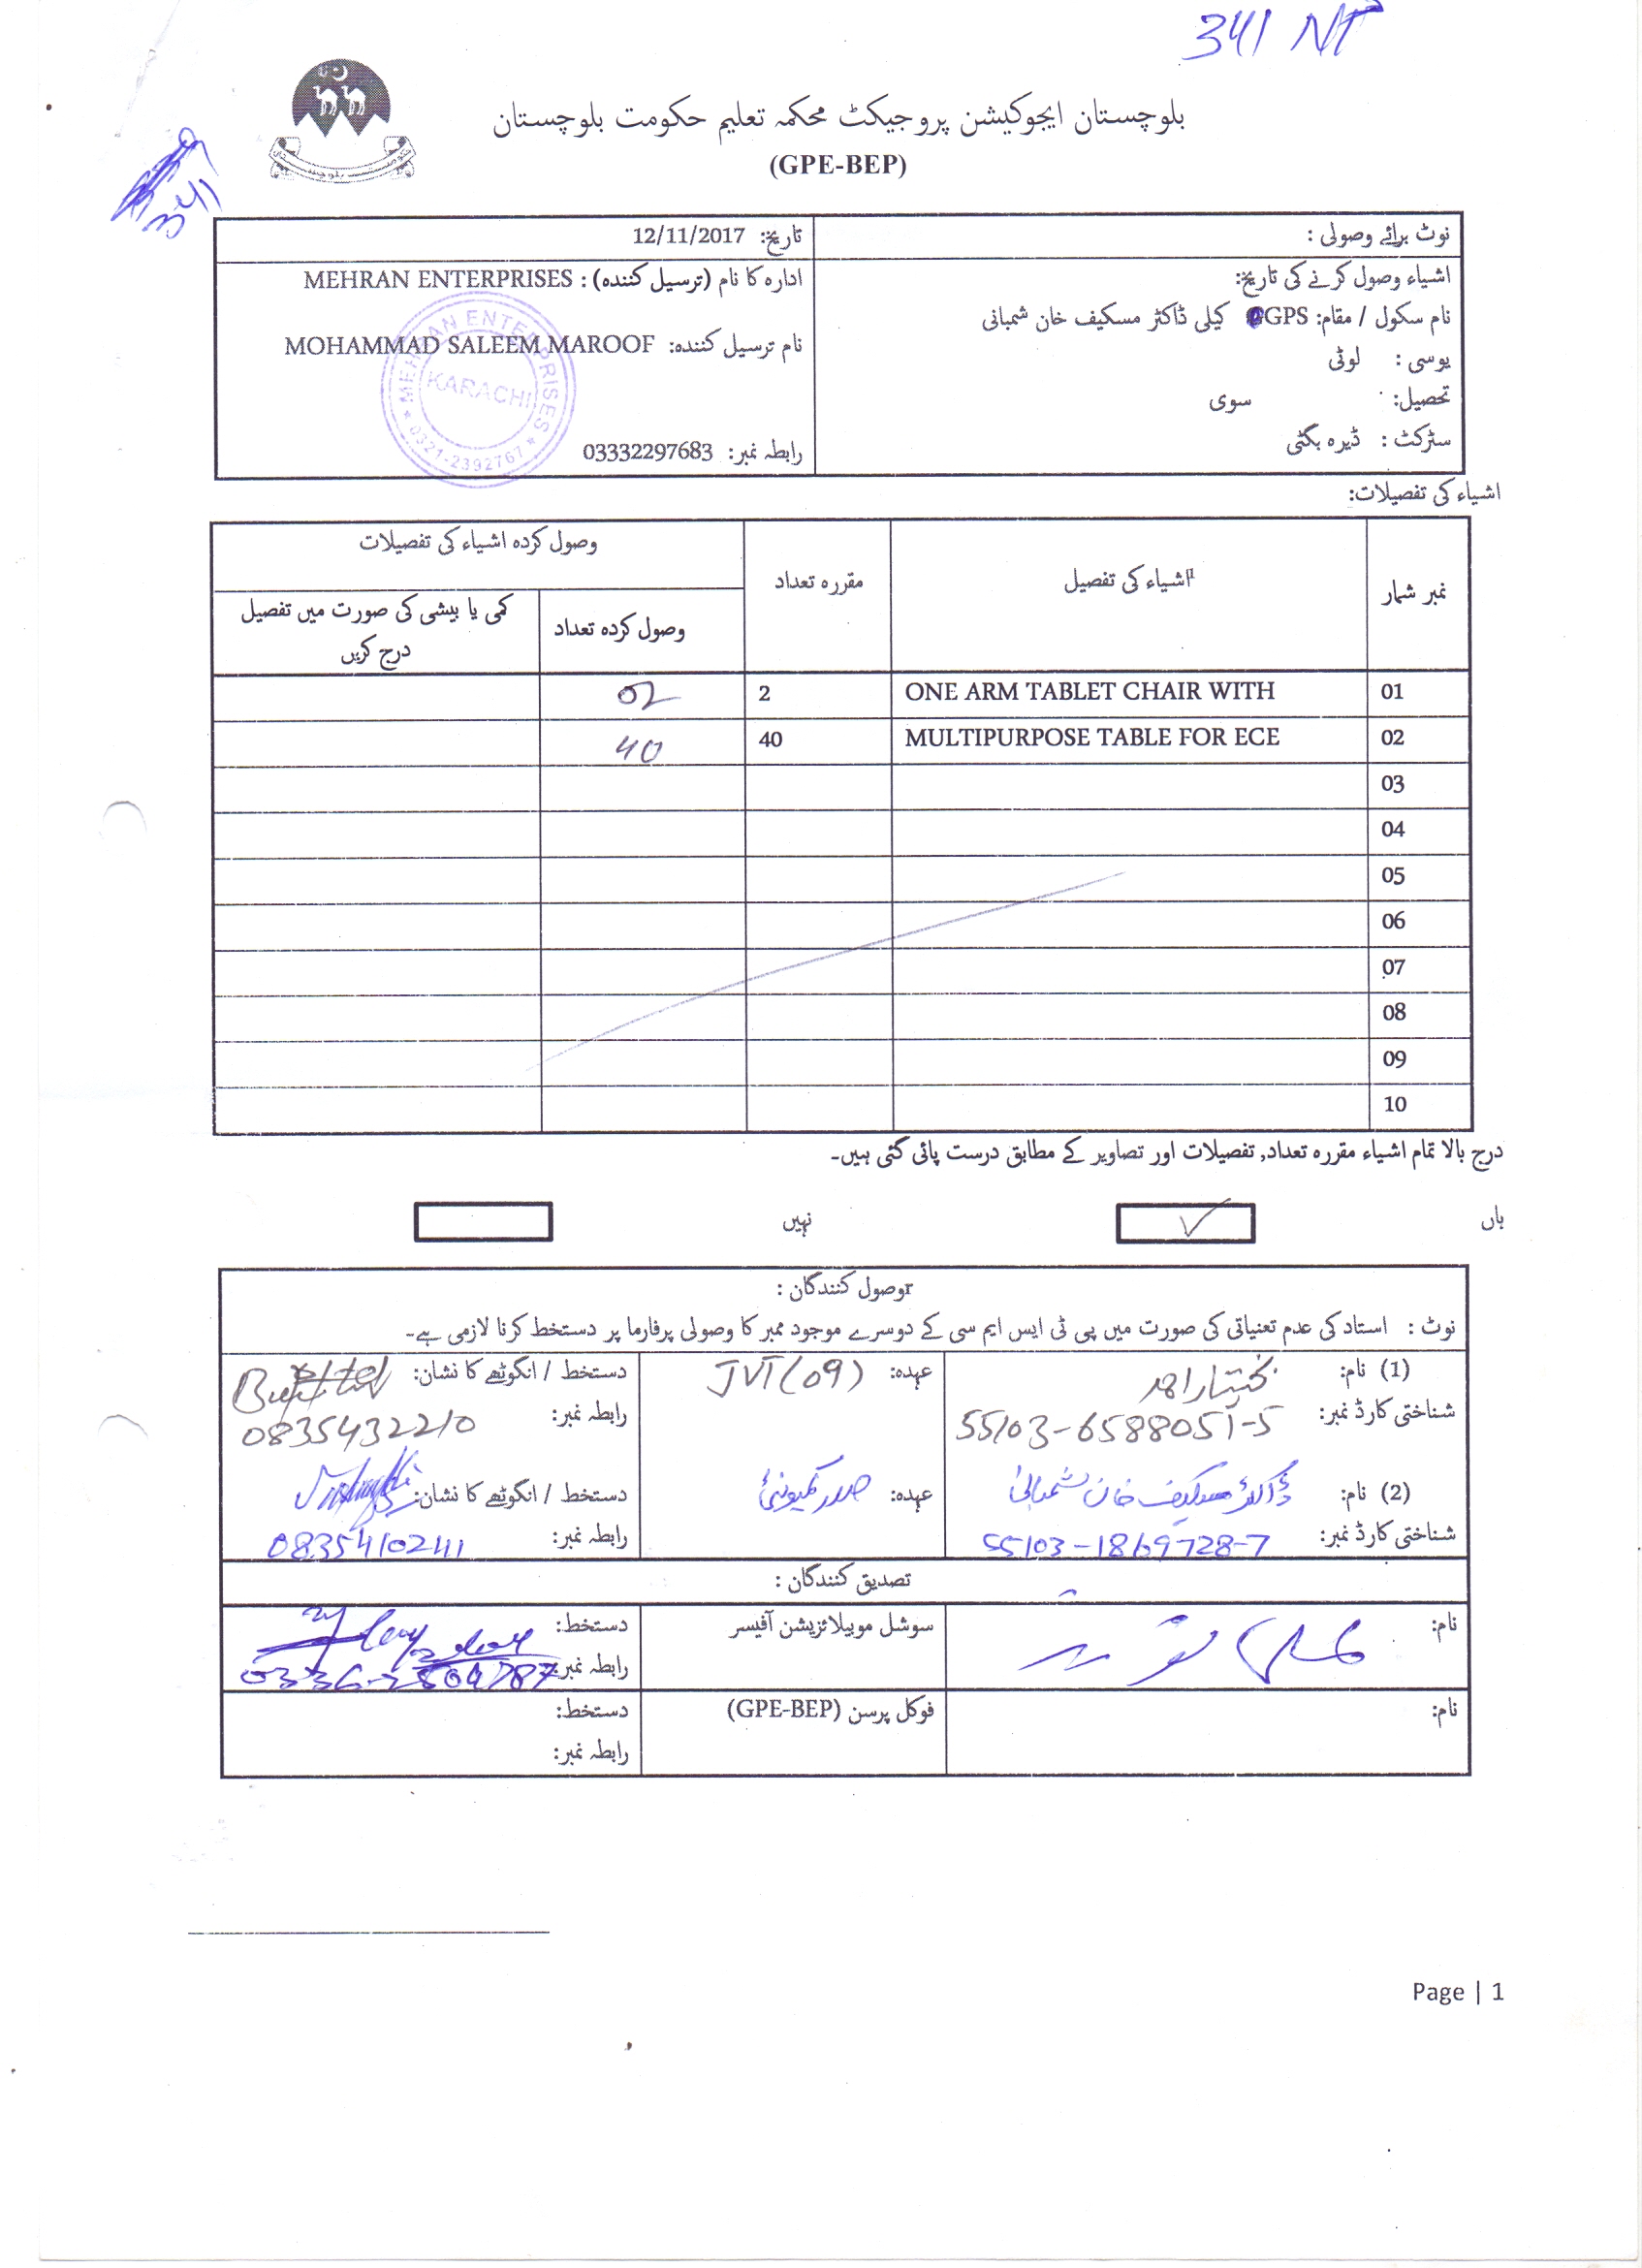 341 NT
341
بلوچستان ایجوکیشن پروجیکٹ محکمہ تعلیم حکومت بلوچستان
(GPE-BEP)
نوٹ برائے وصولی :
تاریخ: 12/11/2017
اشیاء وصول کرنے کی تاریخ:
نام سکول / مقام: GPS کیلی ڈاکٹر مسکیف خان شمبانی
یوسی : لوٹی
تحصیل: سوی
سٹرکٹ : ڈیرہ بگٹی
ادارہ کا نام (ترسیل کنندہ) : MEHRAN ENTERPRISES
نام ترسیل کنندہ: MOHAMMAD SALEEM MAROOF
رابطہ نمبر: 03332297683
MEHRAN ENTERPRISES
KARACHI
0321-2392767
اشیاء کی تفصیلات:
نمبر شمار
اشیاء کی تفصیل
مقررہ تعداد
وصول کردہ اشیاء کی تفصیلات
وصول کردہ تعداد
کمی یا بیشی کی صورت میں تفصیل
درج کریں
01 ONE ARM TABLET CHAIR WITH 2 02
02 MULTIPURPOSE TABLE FOR ECE 40 40
03
04
05
06
07
08
09
10
درج بالا تمام اشیاء مقررہ تعداد, تفصیلات اور تصاویر کے مطابق درست پائی گئی ہیں۔
ہاں ✓ نہیں
وصول کنندگان :
نوٹ : استاد کی عدم تعنیاتی کی صورت میں پی ٹی ایس ایم سی کے دوسرے موجود ممبر کا وصولی پرفارما پر دستخط کرنا لازمی ہے۔
(1) نام: بختیار احمد عہدہ: JVT (09) دستخط / انگوٹھے کا نشان:
شناختی کارڈ نمبر: 55103-6588051-5 رابطہ نمبر: 08354432210
(2) نام: ڈاکٹر مسکیف خان شمبانی عہدہ: صدر کمیونٹی دستخط / انگوٹھے کا نشان:
شناختی کارڈ نمبر: 55103-1869728-7 رابطہ نمبر: 08354102411
تصدیق کنندگان :
نام: سوشل موبیلائزیشن آفیسر دستخط:
رابطہ نمبر:
نام: فوکل پرسن (GPE-BEP) دستخط:
رابطہ نمبر:
Page | 1